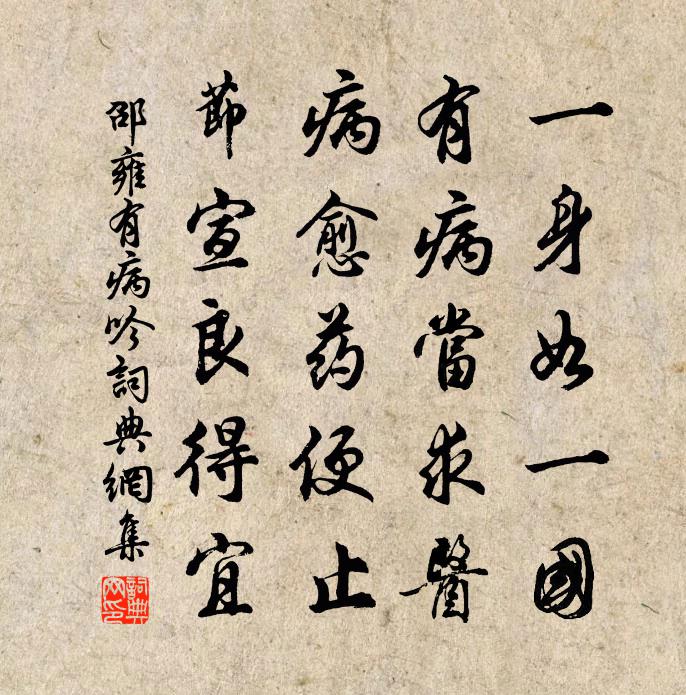 一身如一國
有病當求醫
病愈药便止
節宣良得宜
邵雍有病吟詞典網集
詞典網印